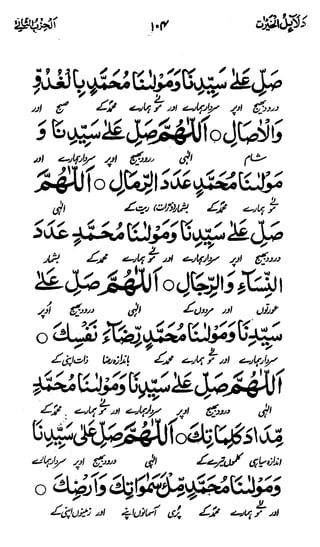 دلائل الخیرات ١٠٤ الحزب الثانی
صَلِّ عَلٰى سَيِّدِنَا وَمَوْلٰىنَا مُحَمَّدٍۢ بِالْغُدُوِّ
درود بھیج اوپر سردار ہمارے اور ہمارے محمدؐ کے صبح اور
وَالْاٰصَالِ ○ اَللّٰهُمَّ صَلِّ عَلٰى سَيِّدِنَا وَ
شام الٰہی درود بھیج اوپر سردار ہمارے اور
مَوْلٰىنَا مُحَمَّدٍ عَدَدَ الرِّمَالِ ○ اَللّٰهُمَّ
ہمارے محمدؐ کے بشمار ریت کے الٰہی
صَلِّ عَلٰى سَيِّدِنَا وَمَوْلٰىنَا مُحَمَّدٍ عَدَدَ
درود بھیج اوپر سردار ہمارے اور ہمارے محمدؐ کے بشمار
النِّسَآءِ وَالرِّجَالِ ○ اَللّٰهُمَّ صَلِّ عَلٰى
عورتوں اور مردوں کے الٰہی درود بھیج اوپر
سَيِّدِنَا وَمَوْلٰىنَا مُحَمَّدٍ رِّضَآءَ نَفْسِكَ ○
سردار ہمارے اور ہمارے محمدؐ کے باندازہ رضا ذات اپنی کے
اَللّٰهُمَّ صَلِّ عَلٰى سَيِّدِنَا وَمَوْلٰىنَا مُحَمَّدٍ
الٰہی درود بھیج اوپر سردار ہمارے اور ہمارے محمدؐ کے
مِّدَادَ كَلِمَاتِكَ ○ اَللّٰهُمَّ صَلِّ عَلٰى سَيِّدِنَا
اندازہ سیاہی کلموں تیرے کے الٰہی درود بھیج اوپر سردار ہمارے
وَمَوْلٰىنَا مُحَمَّدٍ مِّلْءَ سَمٰوَاتِكَ وَاَرْضِكَ ○
اور ہمارے محمدؐ کے پری آسمانوں اپنے اور زمینوں اپنی کے